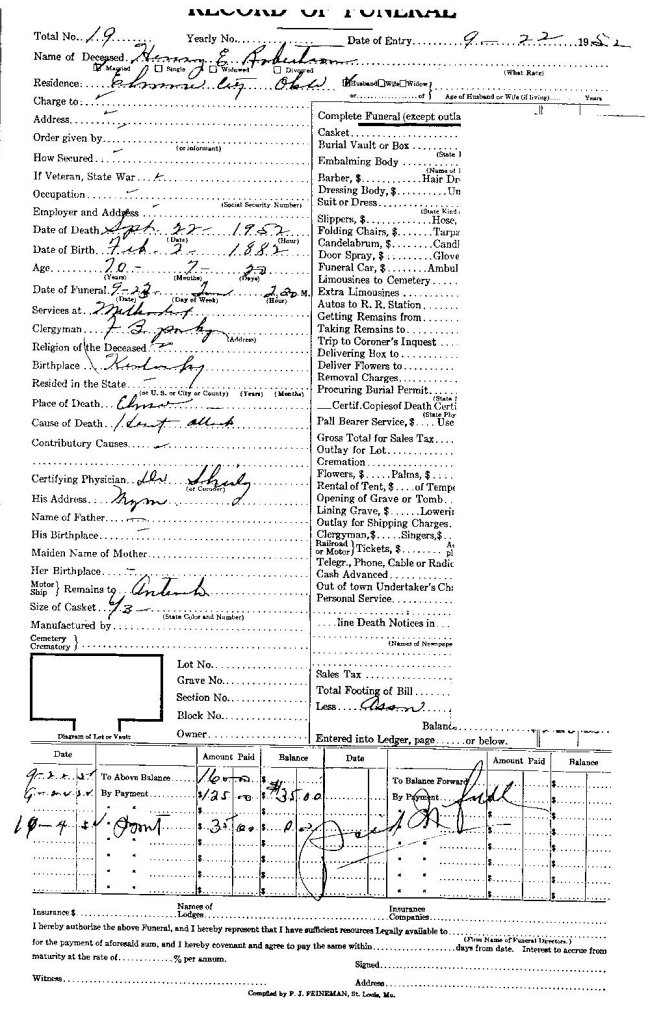 RECORD OF FUNERAL
Total No. 19 Yearly No. Date of Entry 9-22 1952
Name of Deceased Henry E. Robertson
Married Single Widowed Divorced (What Race)
Residence: Elmore City Okla Husband Wife Widow
or of Age of Husband or Wife (if living) Years
Charge to:
Address
Order given by
(or informant)
How Secured
If Veteran, State War
Occupation
(Social Security Number)
Employer and Address
Date of Death Sept. 22 - 1952
(Date) (Hour)
Date of Birth Feb 2 - 1882
Age 70 - 7 - 20
(Years) (Months) (Days)
Date of Funeral 9-23 2:30 M.
(Date) (Day of Week) (Hour)
Services at Methodist
Clergyman F B
(Address)
Religion of the Deceased
Birthplace Kentucky
Resided in the State
(or U. S. or City or County) (Years) (Months)
Place of Death Elmore
Cause of Death Heart attack
Contributory Causes
Certifying Physician Dr.
(or Coroner)
His Address Wynn
Name of Father
His Birthplace
Maiden Name of Mother
Her Birthplace
Motor Ship } Remains to Antioch
Size of Casket 6/3
(State Color and Number)
Manufactured by
Cemetery }
Crematory }
Lot No.
Grave No.
Section No.
Block No.
Diagram of Lot or Vault Owner
Complete Funeral (except outla
Casket
Burial Vault or Box
(State
Embalming Body
(Name of
Barber, $ Hair Dr
Dressing Body, $ Un
Suit or Dress
(State Kind
Slippers, $ Hose,
Folding Chairs, $ Tarpa
Candelabrum, $ Candl
Door Spray, $ Glove
Funeral Car, $ Ambul
Limousines to Cemetery
Extra Limousines
Autos to R. R. Station
Getting Remains from
Taking Remains to
Trip to Coroner's Inquest
Delivering Box to
Deliver Flowers to
Removal Charges
Procuring Burial Permit
(State
Certif. Copies of Death Certi
(State Phy
Pall Bearer Service, $ Use
Gross Total for Sales Tax
Outlay for Lot
Cremation
Flowers, $ Palms, $
Rental of Tent, $ of Tempe
Opening of Grave or Tomb
Lining Grave, $ Loweri
Outlay for Shipping Charges
Clergyman, $ Singers, $
Railroad or Motor } Tickets, $
Telegr., Phone, Cable or Radio
Cash Advanced
Out of town Undertaker's Ch
Personal Service
line Death Notices in
(Names of Newspape
Sales Tax
Total Footing of Bill
Less Assn
Balanc
Entered into Ledger, page or below.
Date Amount Paid Balance Date Amount Paid Balance
9-22-52 To Above Balance 160 00 $ To Balance Forward $
By Payment $125 00 $35 00 By Payment full
10-4-52 $ 35 00 $ 0 00 Paid In
Insurance $ Names of Lodges Insurance Companies
I hereby authorize the above Funeral, and I hereby represent that I have sufficient resources Legally available to
(Firm Name of Funeral Directors.)
for the payment of aforesaid sum, and I hereby covenant and agree to pay the same within days from date. Interest to accrue from
maturity at the rate of % per annum. Signed
Witness Address
Compiled by F. J. FEINEMAN, St. Louis, Mo.